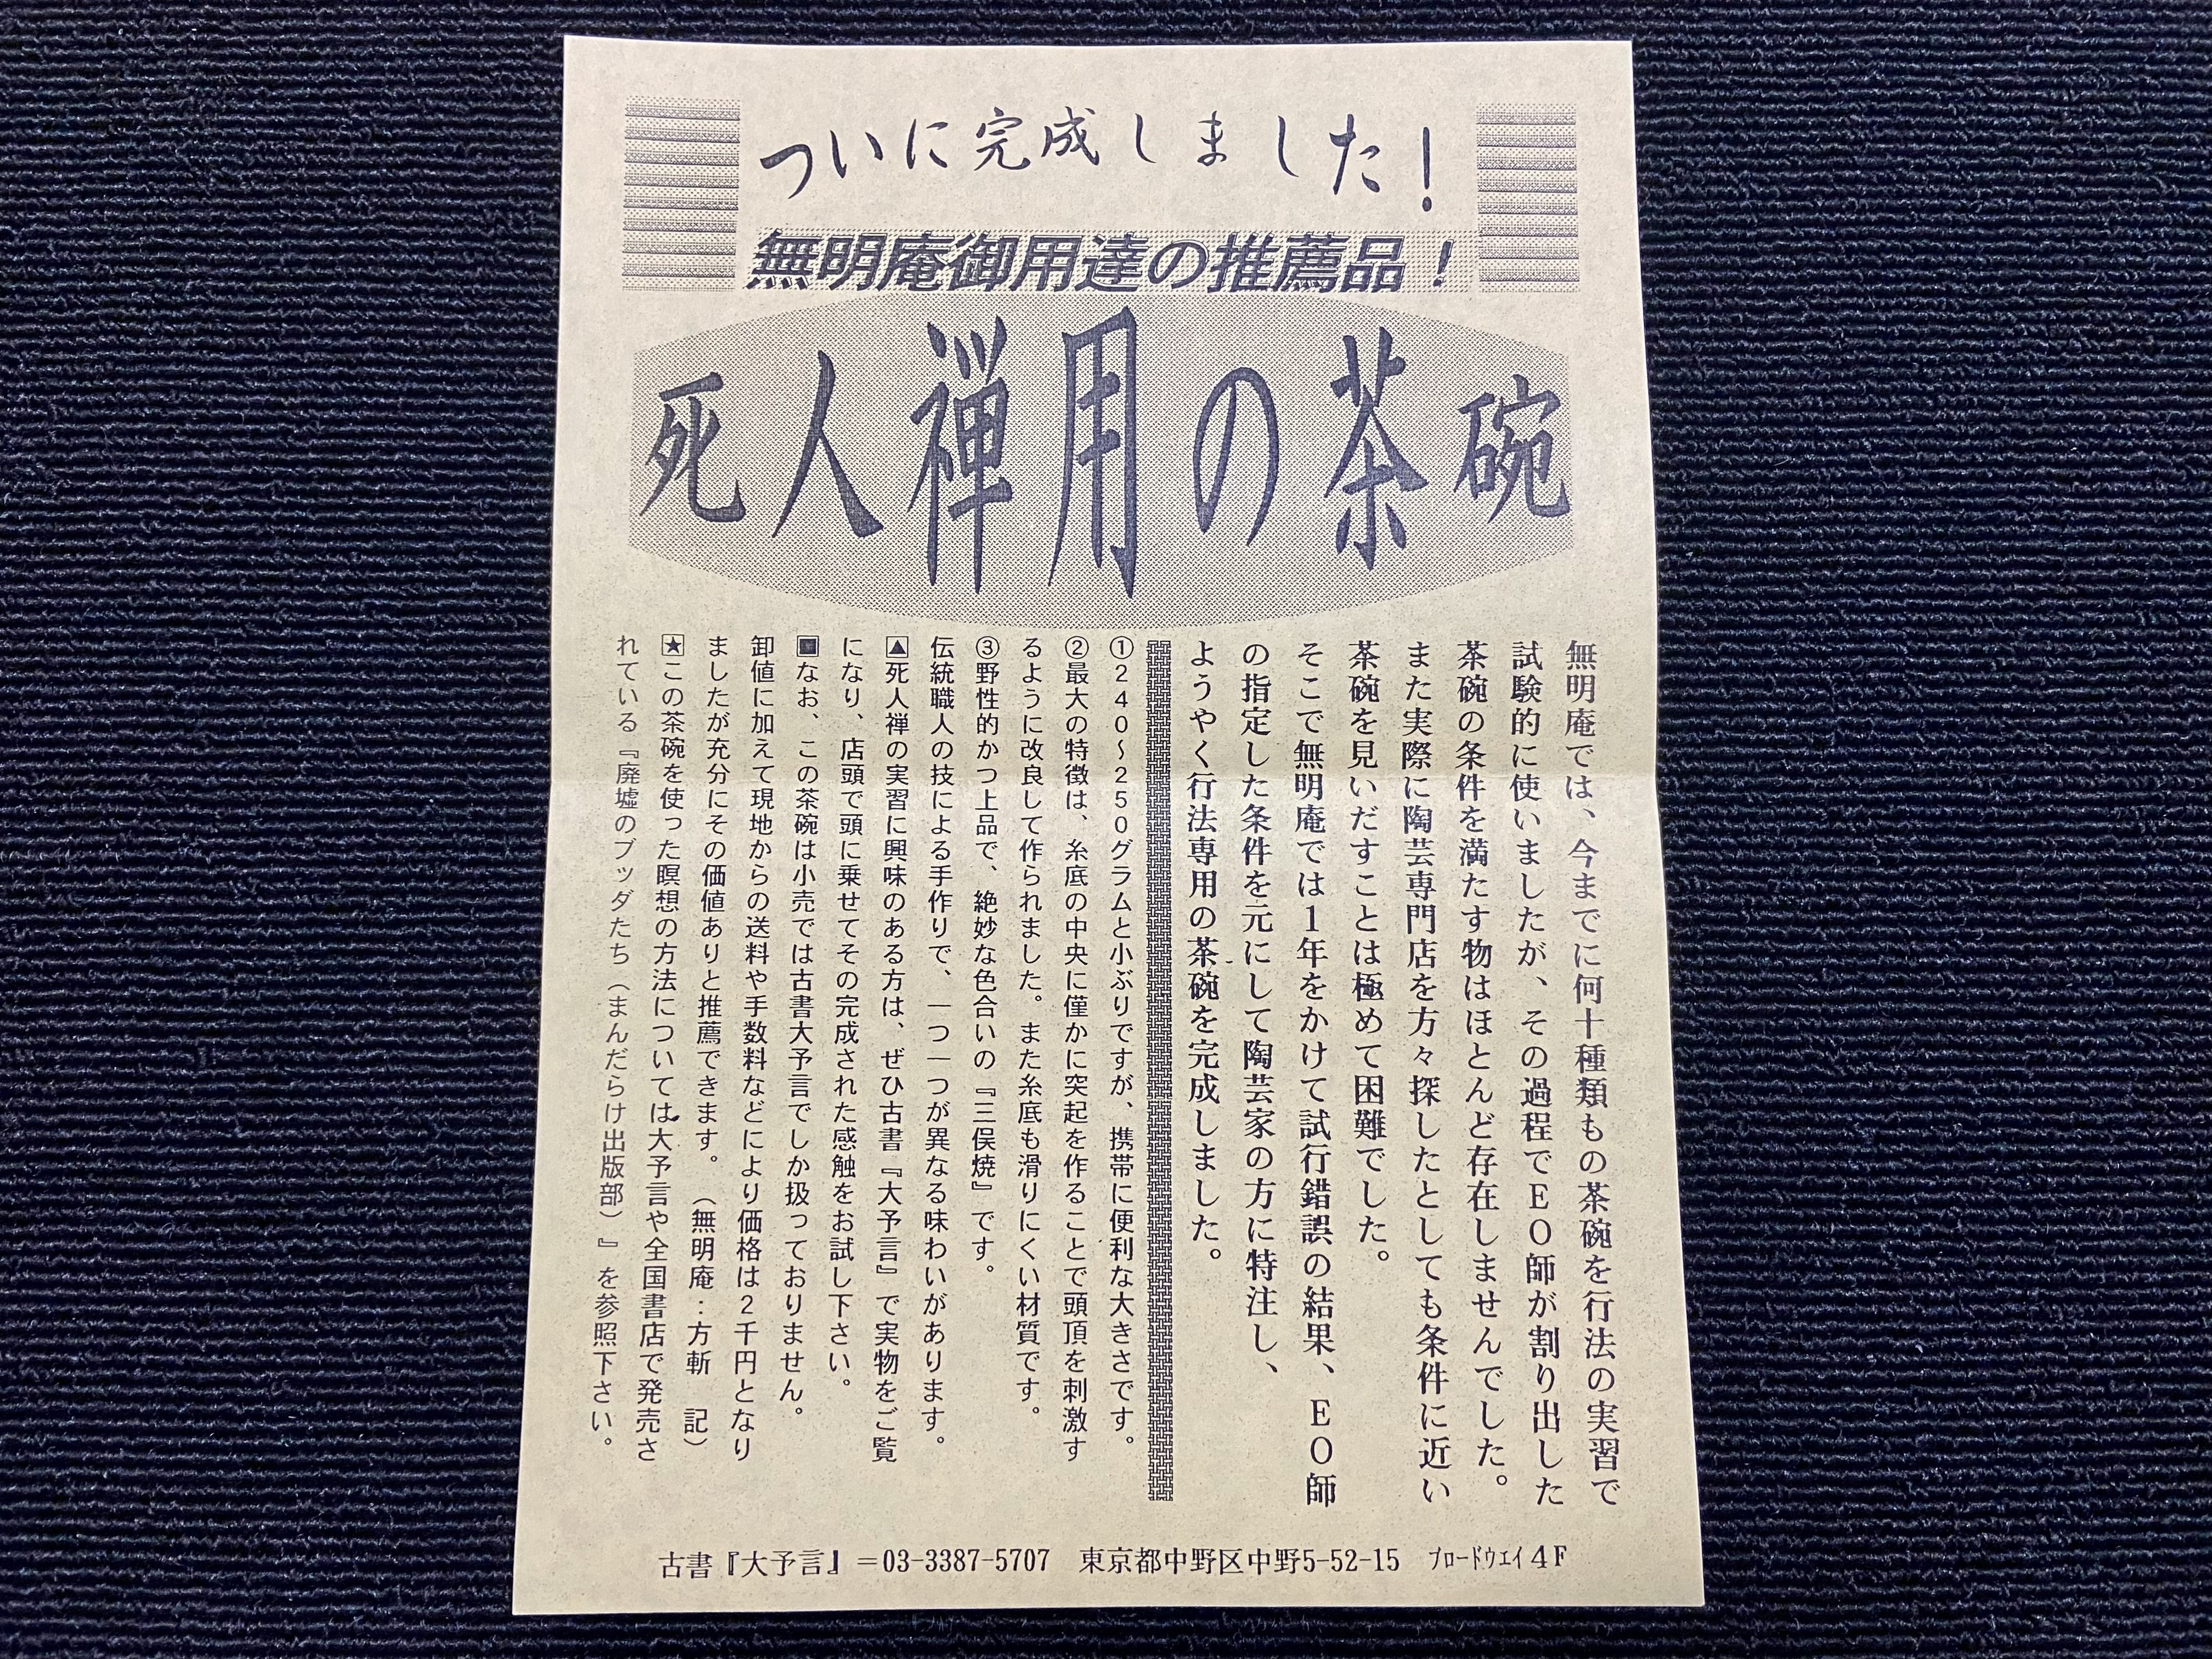 ついに完成しました！
無明庵御用達の推薦品！
死人禅用の茶碗
無明庵では、今までに何十種類もの茶碗を行法の実習で
試験的に使いましたが、その過程でＥＯ師が割り出した
茶碗の条件を満たす物はほとんど存在しませんでした。
また実際に陶芸専門店を方々探したとしても条件に近い
茶碗を見いだすことは極めて困難でした。
そこで無明庵では１年をかけて試行錯誤の結果、ＥＯ師
の指定した条件を元にして陶芸家の方に特注し、
ようやく行法専用の茶碗を完成しました。
①２４０～２５０グラムと小ぶりですが、携帯に便利な大きさです。
②最大の特徴は、糸底の中央に僅かに突起を作ることで頭頂を刺激す
るように改良して作られました。また糸底も滑りにくい材質です。
③野性的かつ上品で、絶妙な色合いの『三俣焼』です。
伝統職人の技による手作りで、一つ一つが異なる味わいがあります。
▲死人禅の実習に興味のある方は、ぜひ古書『大予言』で実物をご覧
になり、店頭で頭に乗せてその完成された感触をお試し下さい。
■なお、この茶碗は小売では古書大予言でしか扱っておりません。
卸値に加えて現地からの送料や手数料などにより価格は２千円となり
ましたが充分にその価値ありと推薦できます。（無明庵：方斬　記）
★この茶碗を使った瞑想の方法については大予言や全国書店で発売さ
れている『廃墟のブッダたち（まんだらけ出版部）』を参照下さい。
古書『大予言』＝03-3387-5707　東京都中野区中野5-52-15　ブロードウエイ４F